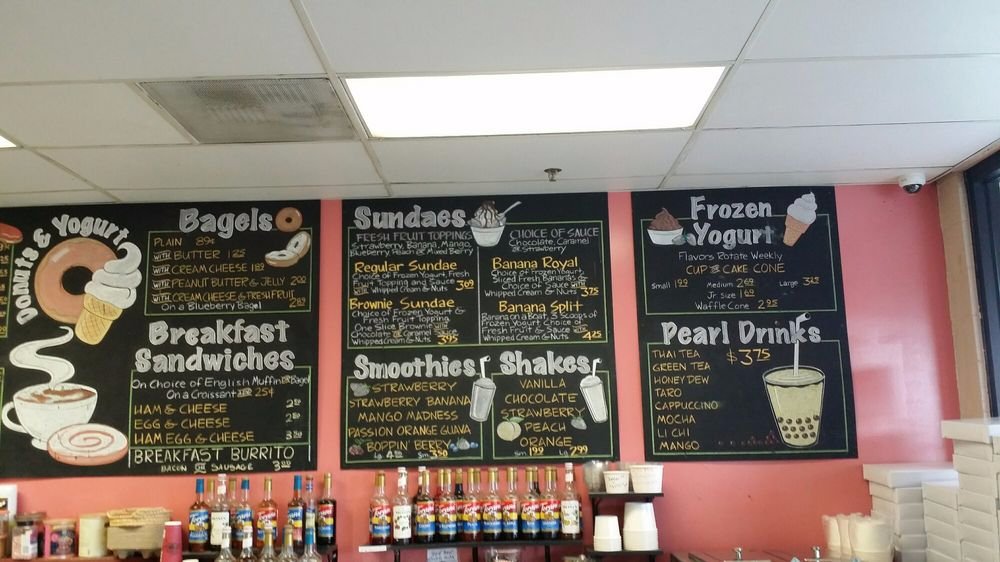 Donuts & Yogurt
Bagels
PLAIN 89¢
WITH BUTTER 1.25
WITH CREAM CHEESE 1.89
WITH PEANUT BUTTER & JELLY 2.00
WITH CREAM CHEESE & FRESH FRUIT
On a Blueberry Bagel 2.89
Breakfast
Sandwiches
On Choice of English Muffin OR Bagel
On a Croissant ADD 25¢
HAM & CHEESE
EGG & CHEESE
HAM EGG & CHEESE
BREAKFAST BURRITO
BACON OR SAUSAGE
Sundaes
FRESH FRUIT TOPPINGS
Strawberry, Banana, Mango,
Blueberry, Peach or Mixed Berry
CHOICE OF SAUCE
Chocolate, Caramel
or Strawberry
Regular Sundae
Choice of Frozen Yogurt, Fresh
Fruit Topping and Sauce
WITH Whipped Cream & Nuts 3.69
Brownie Sundae
Choice of Frozen Yogurt &
Fresh Fruit Topping
One Slice Brownie WITH
Chocolate OR Caramel Sauce
Whipped Cream & Nuts 3.95
Banana Royal
Choice of Frozen Yogurt,
Sliced Fresh Bananas &
Choice of Sauce WITH
Whipped Cream & Nuts 3.75
Banana Split
Banana on a Boat, 3 Scoops of
Frozen Yogurt, Choice of
Fresh Fruit & Sauce WITH
Whipped Cream & Nuts 4.25
Smoothies
STRAWBERRY
STRAWBERRY BANANA
MANGO MADNESS
PASSION ORANGE GUAVA
BOPPIN' BERRY
Lg 4.50 Sm 3.50
Shakes
VANILLA
CHOCOLATE
STRAWBERRY
PEACH
ORANGE
Sm 1.99 Lg 2.99
Frozen
Yogurt
Flavors Rotate Weekly
CUP OR CAKE CONE
Small 1.99 Medium 2.69 Large 3.25
Jr. Size 1.60
Waffle Cone 2.95
Pearl Drinks
THAI TEA $3.75
GREEN TEA
HONEY DEW
TARO
CAPPUCCINO
MOCHA
LI CHI
MANGO
Torani